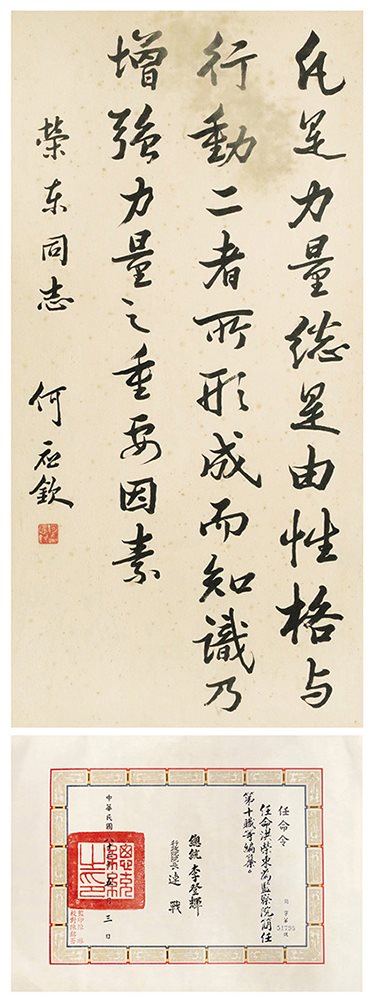 凡是力量總是由性格与
行動二者所形成而知識乃
增強力量之重要因素
榮东同志
何应欽
任命令
任命洪榮東為監察院簡任
第十職等編纂。
總統 李登輝
行政院院長 連戰
中華民國
三日
總統之印
51795